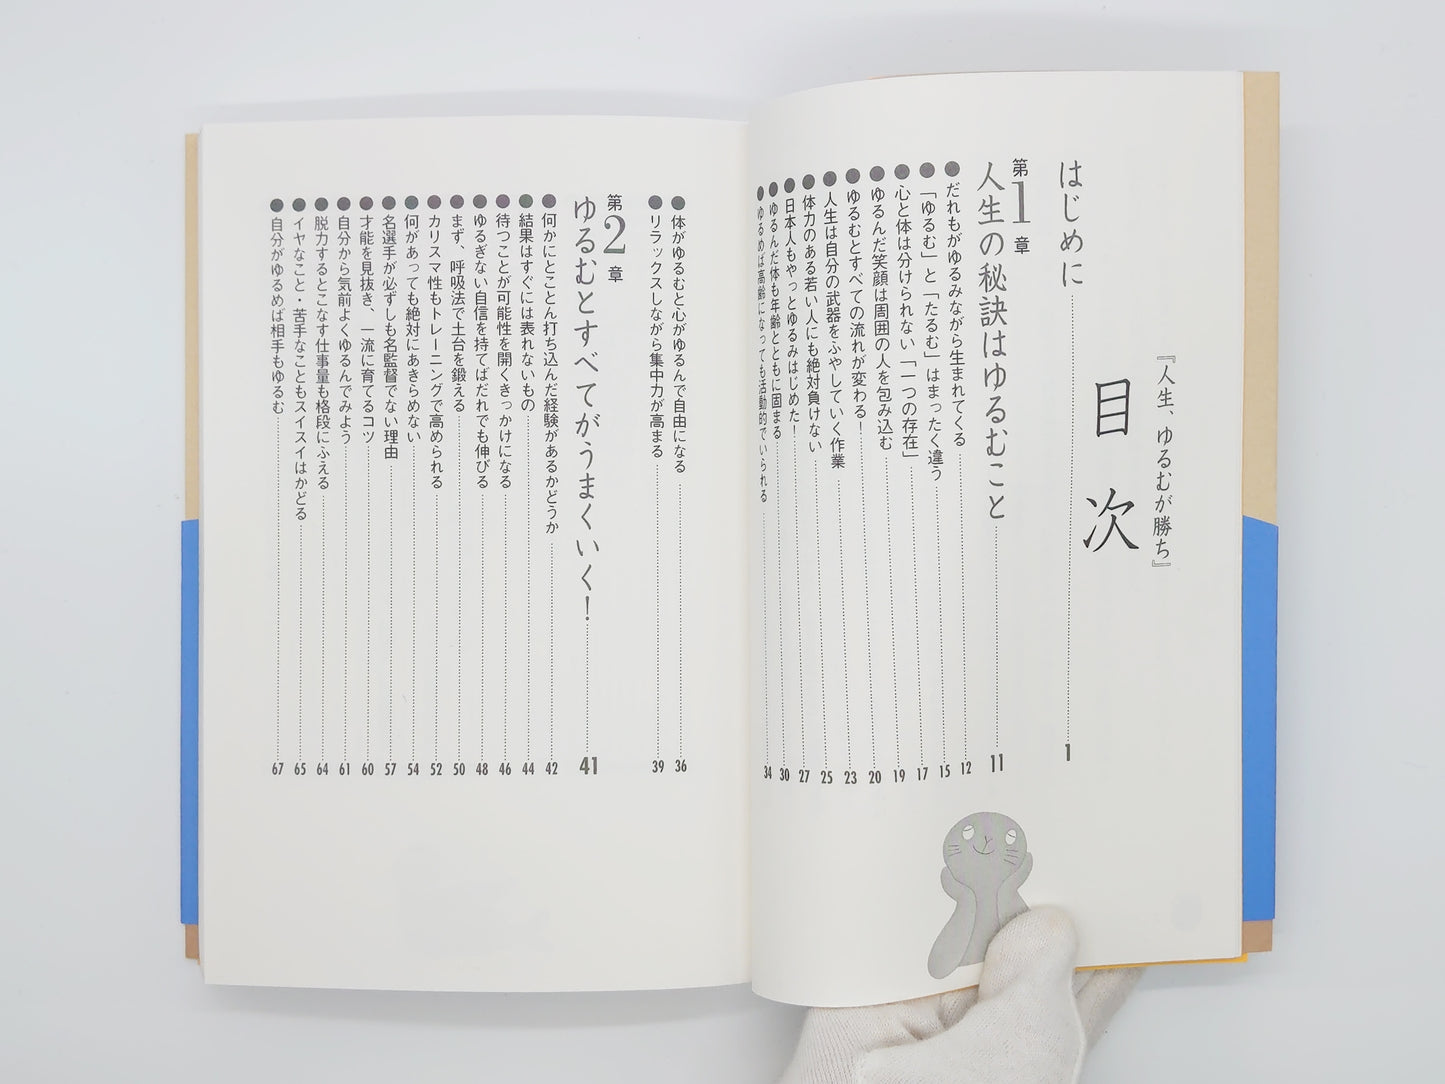 『人生、ゆるむが勝ち』
目次
はじめに 1
第1章
人生の秘訣はゆるむこと 11
●だれもがゆるみながら生まれてくる 12
●「ゆるむ」と「たるむ」はまったく違う 15
●心と体は分けられない「一つの存在」 17
●ゆるんだ笑顔は周囲の人を包み込む 19
●ゆるむとすべての流れが変わる! 20
●人生は自分の武器をふやしていく作業 23
●体力のある若い人にも絶対負けない 25
●日本人もやっとゆるみはじめた! 27
●ゆるんだ体も年齢とともに固まる 30
●ゆるめば高齢になっても活動的でいられる 34
●体がゆるむと心がゆるんで自由になる 36
●リラックスしながら集中力が高まる 39
第2章
ゆるむとすべてがうまくいく! 41
●何かにとことん打ち込んだ経験があるかどうか 42
●結果はすぐには表れないもの 44
●待つことが可能性を開くきっかけになる 46
●ゆるぎない自信を持てばだれでも伸びる 48
●まず、呼吸法で土台を鍛える 50
●カリスマ性もトレーニングで高められる 52
●何があっても絶対にあきらめない 54
●名選手が必ずしも名監督でない理由 57
●才能を見抜き、一流に育てるコツ 60
●自分から気前よくゆるんでみよう 61
●脱力するとこなす仕事量も格段にふえる 64
●イヤなこと・苦手なこともスイスイはかどる 65
●自分がゆるめば相手もゆるむ 67